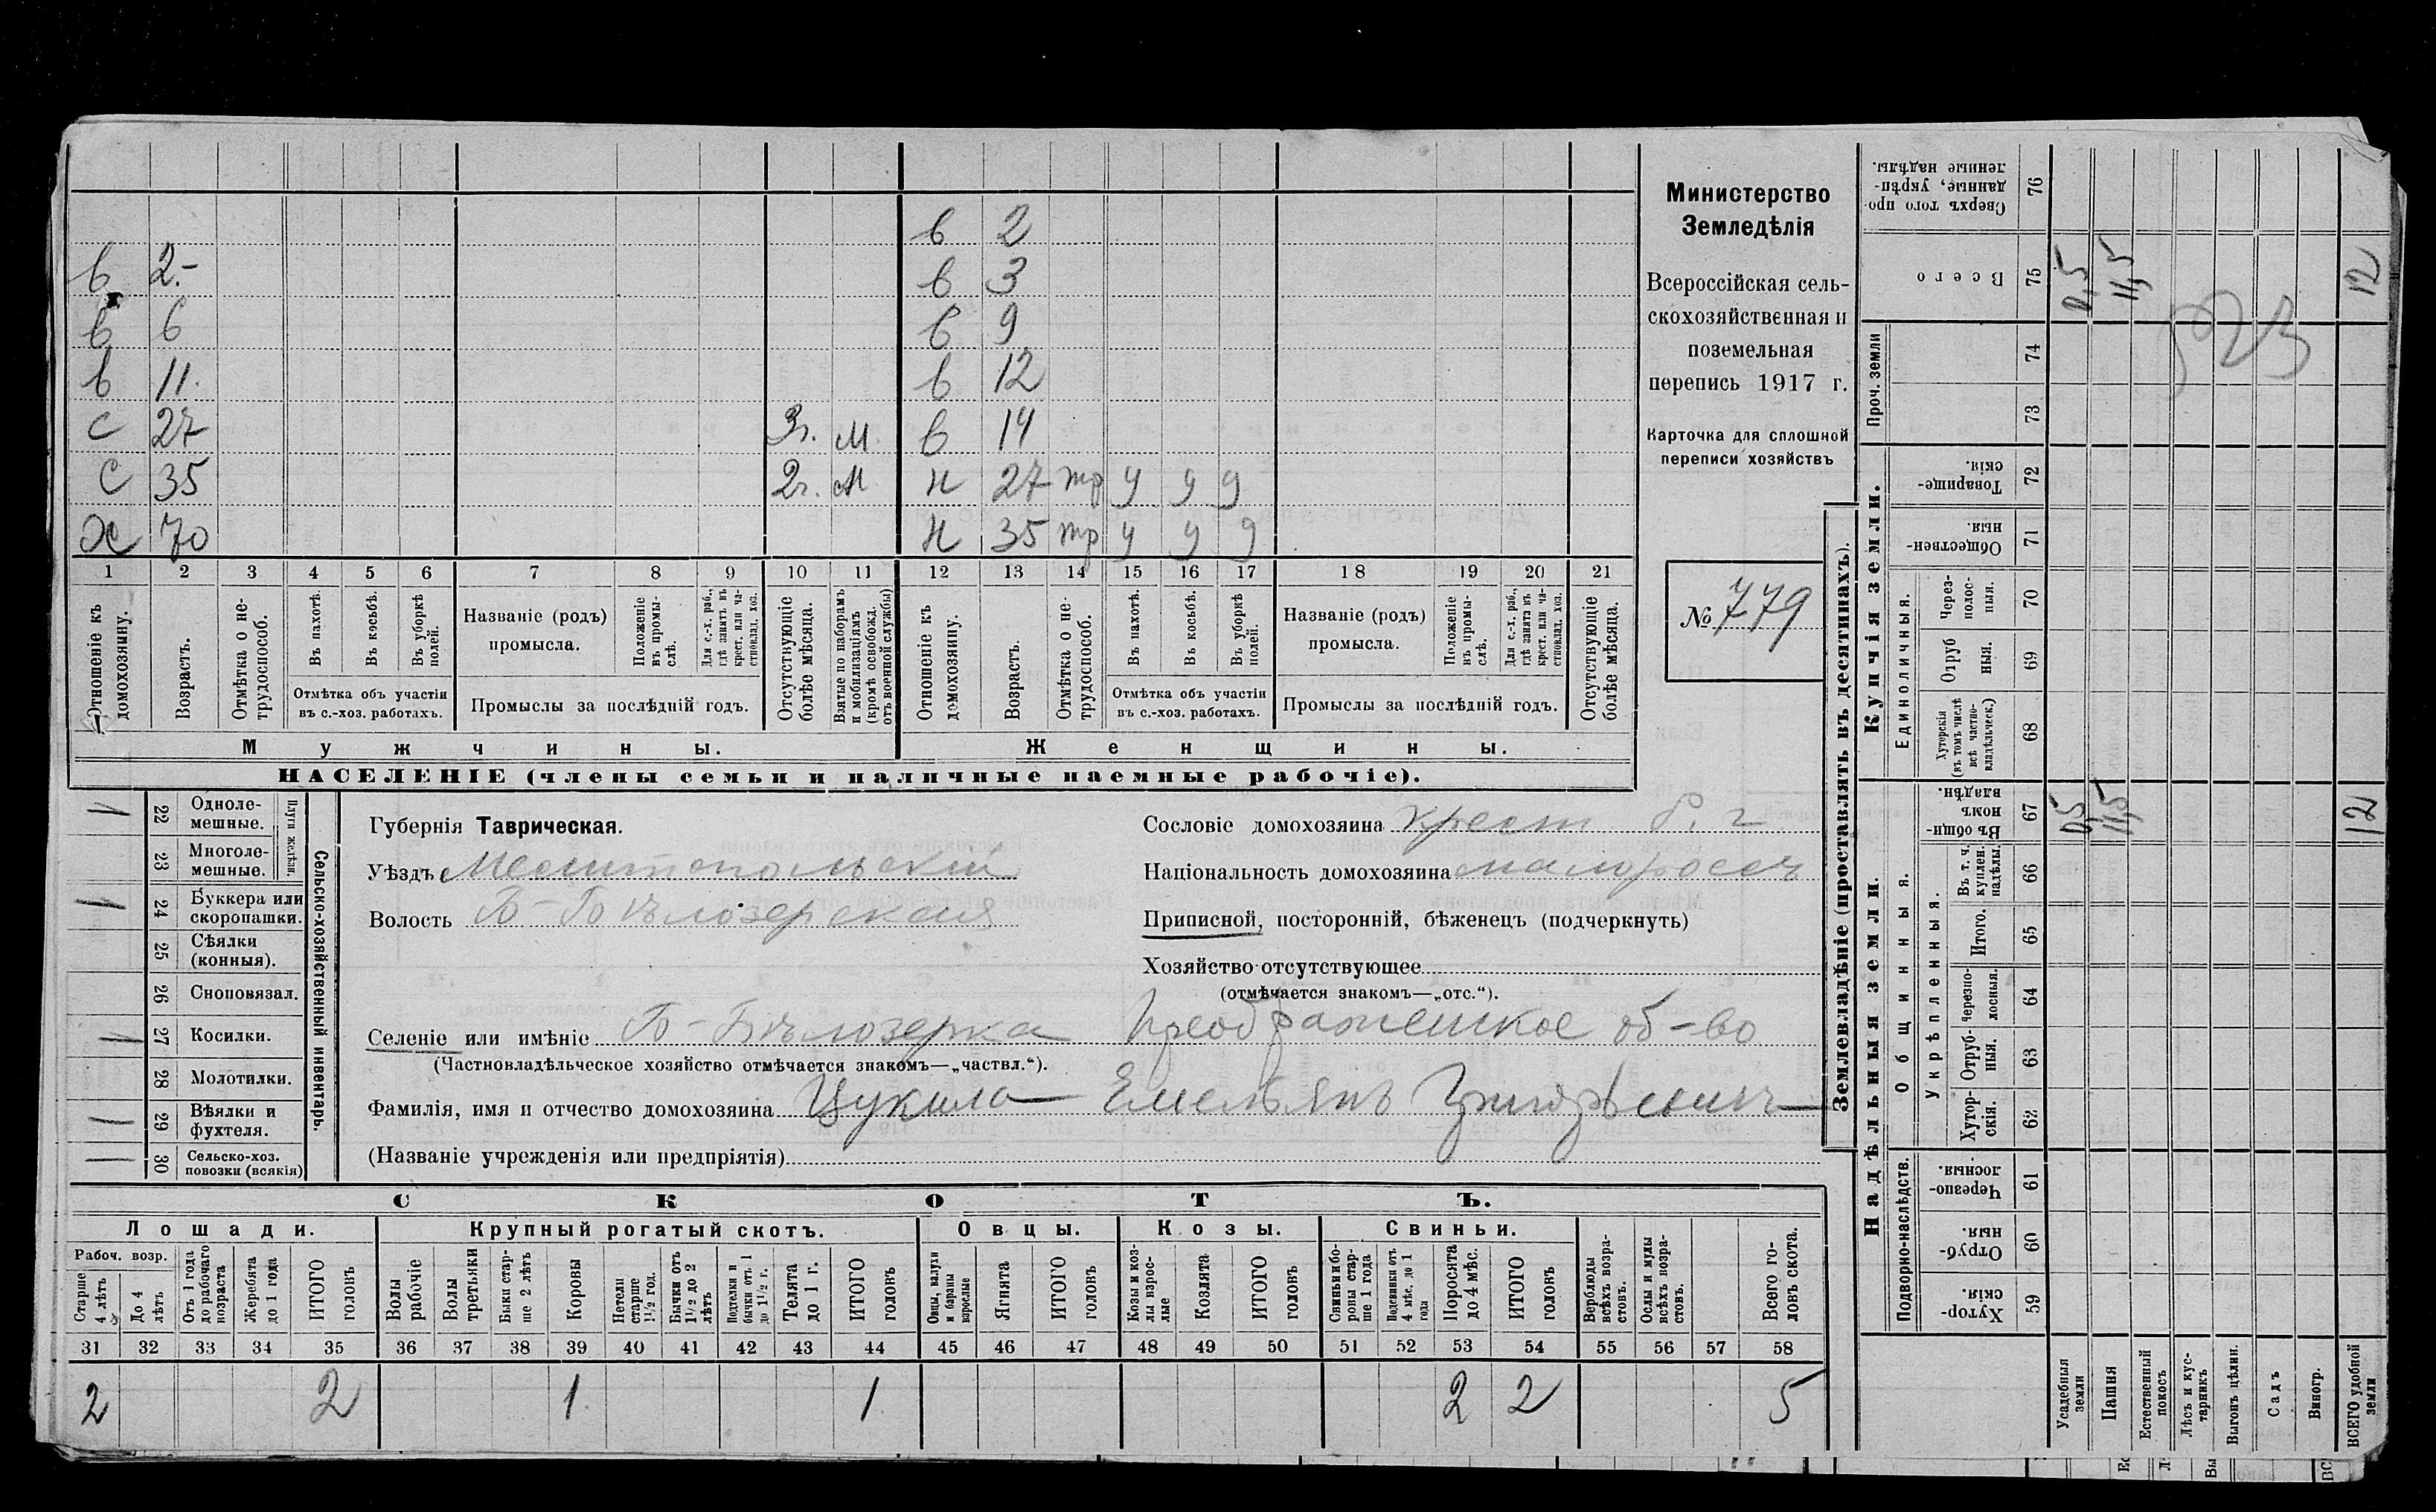 в 2
в 2.- в 3
в 6 в 9
в 11. в 12
с 27 3г. м. в 14
с 35 2г. м н 27 тр у у у
х 70 н 35 тр у у у
1 2 3 4 5 6 7 8 9 10 11 12 13 14 15 16 17 18 19 20 21
Отношеніе къ домохозяину.
Возрастъ.
Отмѣтка о не-
трудоспособ.
Въ пахотѣ.
Въ косьбѣ.
Въ уборкѣ полей.
Отмѣтка объ участіи
въ с.-хоз. работахъ.
Названіе (родъ)
промысла.
Положеніе
въ промы-
слѣ.
Для с.-х. раб.,
гдѣ занятъ въ
крест. или ча-
стновлад. хоз.
Промыслы за послѣдній годъ.
Отсутствующіе
болѣе мѣсяца.
Взятые по наборамъ
и мобилизаціямъ
(кромѣ освобожд.
отъ военной службы)
Отношеніе къ
домохозяину.
Возрастъ.
Отмѣтка о не-
трудоспособ.
Въ пахотѣ.
Въ косьбѣ.
Въ уборкѣ
полей.
Отмѣтка объ участіи
въ с.-хоз. работахъ.
Названіе (родъ)
промысла.
Положеніе
въ промы-
слѣ.
Для с.-х. раб.,
гдѣ занята въ
крест. или ча-
стновлад. хоз.
Промыслы за послѣдній годъ.
Отсутствующіе
болѣе мѣсяца.
Мужчины. Женщины.
НАСЕЛЕНІЕ (члены семьи и наличные наемные рабочіе).
Министерство
Земледѣлія
Всероссійская сель-
скохозяйственная и
поземельная
перепись 1917 г.
Карточка для сплошной
переписи хозяйствъ
№ 779
22 Одноле-
мешные.
23 Многоле-
мешные.
Плуги желѣзн.
24 Буккера или
скоропашки.
25 Сѣялки
(конныя).
26 Сноповязал.
27 Косилки.
28 Молотилки.
29 Вѣялки и
фухтеля.
30 Сельско-хоз.
повозки (всякія)
Сельско-хозяйственный инвентарь.
Губернія Таврическая.
Уѣздъ Мелитопольскій
Волость Б-Бѣлозерская
Сословіе домохозяина крест
Національность домохозяина малоросс
Приписной, посторонній, бѣженецъ (подчеркнуть)
Хозяйство отсутствующее
(отмѣчается знакомъ—„отс.“).
Селеніе или имѣніе Б-Бѣлозерка Преображенское об-во
(Частновладѣльческое хозяйство отмѣчается знакомъ—„частвл.“).
Фамилія, имя и отчество домохозяина Цукила Емельянъ Григорьевич
(Названіе учрежденія или предпріятія)
СКОТЪ.
Лошади. Крупный рогатый скотъ. Овцы. Козы. Свиньи.
Рабоч. возр.
Старше
4 лѣтъ
До 4
лѣтъ
Отъ 1 года
до рабочаго
возраста
Жеребята
до 1 года
ИТОГО
головъ
Волы
рабочіе
Волы
третьяки
Быки стар-
ше 2 лѣтъ
Коровы
Нетели
старше
1½ год.
Бычки отъ
1½ до 2
лѣтъ
Подтелки и
бычки отъ 1
до 1½ г.
Телята
до 1 г.
ИТОГО
головъ
Овцы, валухи
и бараны
взрослые
Ягнята
ИТОГО
головъ
Козы и коз-
лы взрос-
лые
Козлята
ИТОГО
головъ
Свиньи и бо-
ровы стар-
ше 1 года
Подсвинки отъ
4 мѣс. до 1
года
Поросята
до 4 мѣс.
ИТОГО
головъ
Верблюды
всѣхъ возра-
стовъ.
Ослы и мулы
всѣхъ возра-
стовъ.
Всего го-
ловъ скота.
31 32 33 34 35 36 37 38 39 40 41 42 43 44 45 46 47 48 49 50 51 52 53 54 55 56 57 58
2 2 1 1 2 2 5
Землевладѣніе (проставлять въ десятинахъ).
Сверхъ того про-
данные, укрѣп-
ленные надѣлы.
76
Всего
75 0,5 11,5 12
Проч. земли
74
73
523
Купчія земли.
Товарище-
скія.
72
Обществен-
ныя.
71
Единоличныя.
Через-
полос-
ныя.
70
Отруб
ныя.
69
Хуторскія
(въ томъ числѣ
всѣ частно-
владѣльческ.)
68
Надѣльныя земли.
Общинныя.
Въ общин-
номъ
владѣн.
67 0,5 11,5 12
Укрѣпленныя.
Въ т. ч.
куплен.
надѣлы.
66
Итого.
65
Черезпо-
лосныя.
64
Отруб-
ныя.
63
Хутор-
скія.
62
Подворно-наслѣдств.
Черезпо-
лосныя.
61
Отруб-
ныя.
60
Хутор-
скія.
59
Усадебныя
земли
Пашня
Естественный
покосъ
Лѣсъ и кус-
тарникъ
Выгонъ цѣлин.
Садъ
Виногр.
ВСЕГО удобной
земли